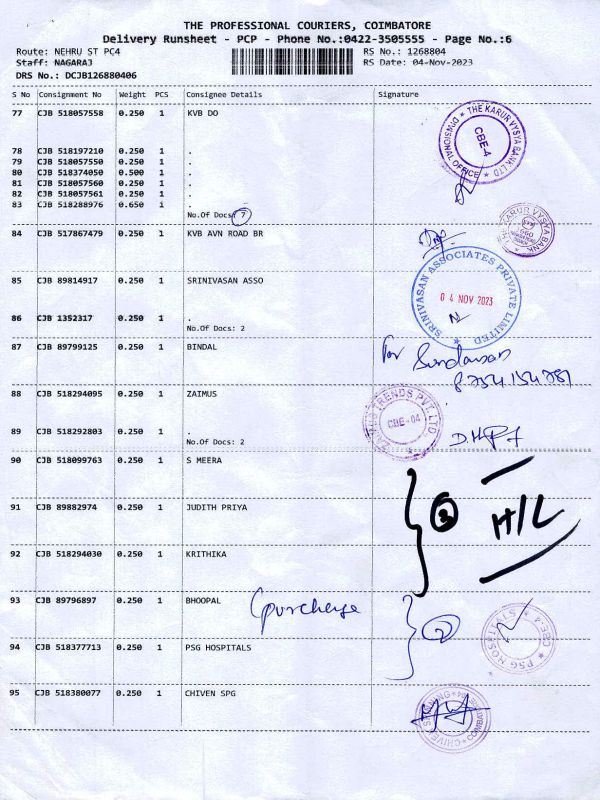 THE PROFESSIONAL COURIERS, COIMBATORE
Delivery Runsheet - PCP - Phone No.:0422-3505555 - Page No.:6
Route: NEHRU ST PC4 RS No.: 1268804
Staff: NAGARAJ RS Date: 04-Nov-2023
DRS No.: DCJB126880406
S No Consignment No Weight PCS Consignee Details Signature
77 CJB 518057558 0.250 1 KVB DO
THE KARUR VYSYA BANK LTD DIVISIONAL OFFICE CBE-4
78 CJB 518197210 0.250 1 .
79 CJB 518057550 0.250 1 .
80 CJB 518374050 0.500 1 .
81 CJB 518057560 0.250 1 .
82 CJB 518057561 0.250 1 .
83 CJB 518288976 0.650 1 .
No.Of Docs: 7
84 CJB 517867479 0.250 1 KVB AVN ROAD BR
KARUR VYSYA BANK
85 CJB 89814917 0.250 1 SRINIVASAN ASSO
SRINIVASAN ASSOCIATES PRIVATE LIMITED
04 NOV 2023
86 CJB 1352317 0.250 1 .
No.Of Docs: 2
87 CJB 89799125 0.250 1 BINDAL
for
88 CJB 518294095 0.250 1 ZAIMUS
TRENDS PVT.LTD CBE-04
89 CJB 518292803 0.250 1 .
No.Of Docs: 2
90 CJB 518099763 0.250 1 S MEERA
91 CJB 89882974 0.250 1 JUDITH PRIYA
3 H/L
92 CJB 518294030 0.250 1 KRITHIKA
93 CJB 89796897 0.250 1 BHOOPAL
purchase
2
94 CJB 518377713 0.250 1 PSG HOSPITALS
PSG HOSPITALS CBE-4
95 CJB 518380077 0.250 1 CHIVEN SPG